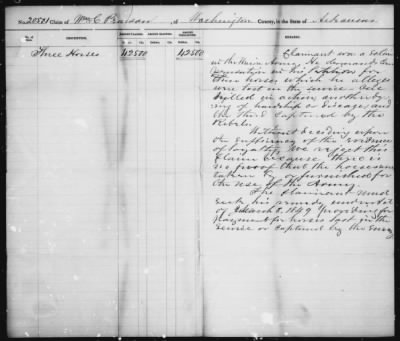 No. 20501 Claim of Wm C Pearson, of Washington County, in the State of Arkansas
DESCRIPTION.
AMOUNT CLAIMED.
AMOUNT ALLOWED.
AMOUNT DISALLOWED.
REMARKS.
Dollars. Cts. Dollars. Cts. Dollars. Cts.
Three Horses 425 00 425 00
Claimant was a soldier
in the Union Army. He demands
compensation in his petition for
three horses which he alleges
were lost in the service. One
killed in action, another dy-
ing of hardship & disease, and
the third captured by the
Rebels.
Without deciding upon
the sufficiency of the evidence
of loyalty, we reject this
claim because there is
no proof that the horses were
taken by or furnished for
the use of the Army.
The claimant must
seek his remedy under act
of March 3, 1849 providing for
payment for horses lost in the
service or captured by the Enemy